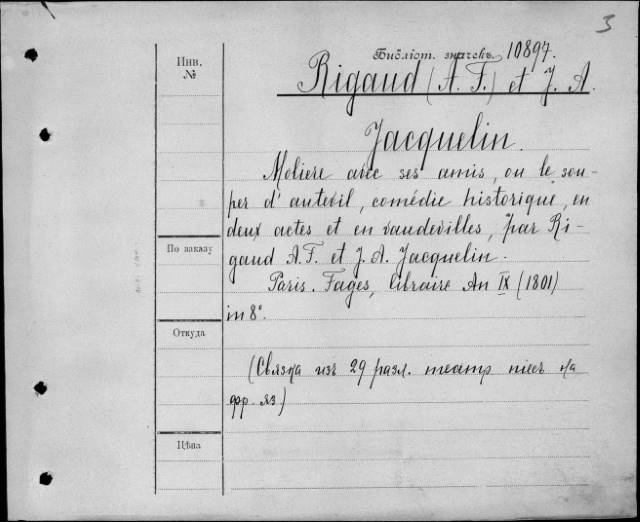 3
Инв.
№
Библіот. значекъ. 10897.
Rigaud (A. F.) et J. A.
Jacquelin.
Moliere avec ses amis, ou le sou-
per d'auteuil, comédie historique, en
deux actes et en vaudevilles, par Ri-
gaud A. F. et J. A. Jacquelin.
По заказу
Paris. Fages, libraire An IX (1801)
in 8°.
Откуда
(Связка изъ 29 разл. театр пiес на
фр. яз.)
Цѣна